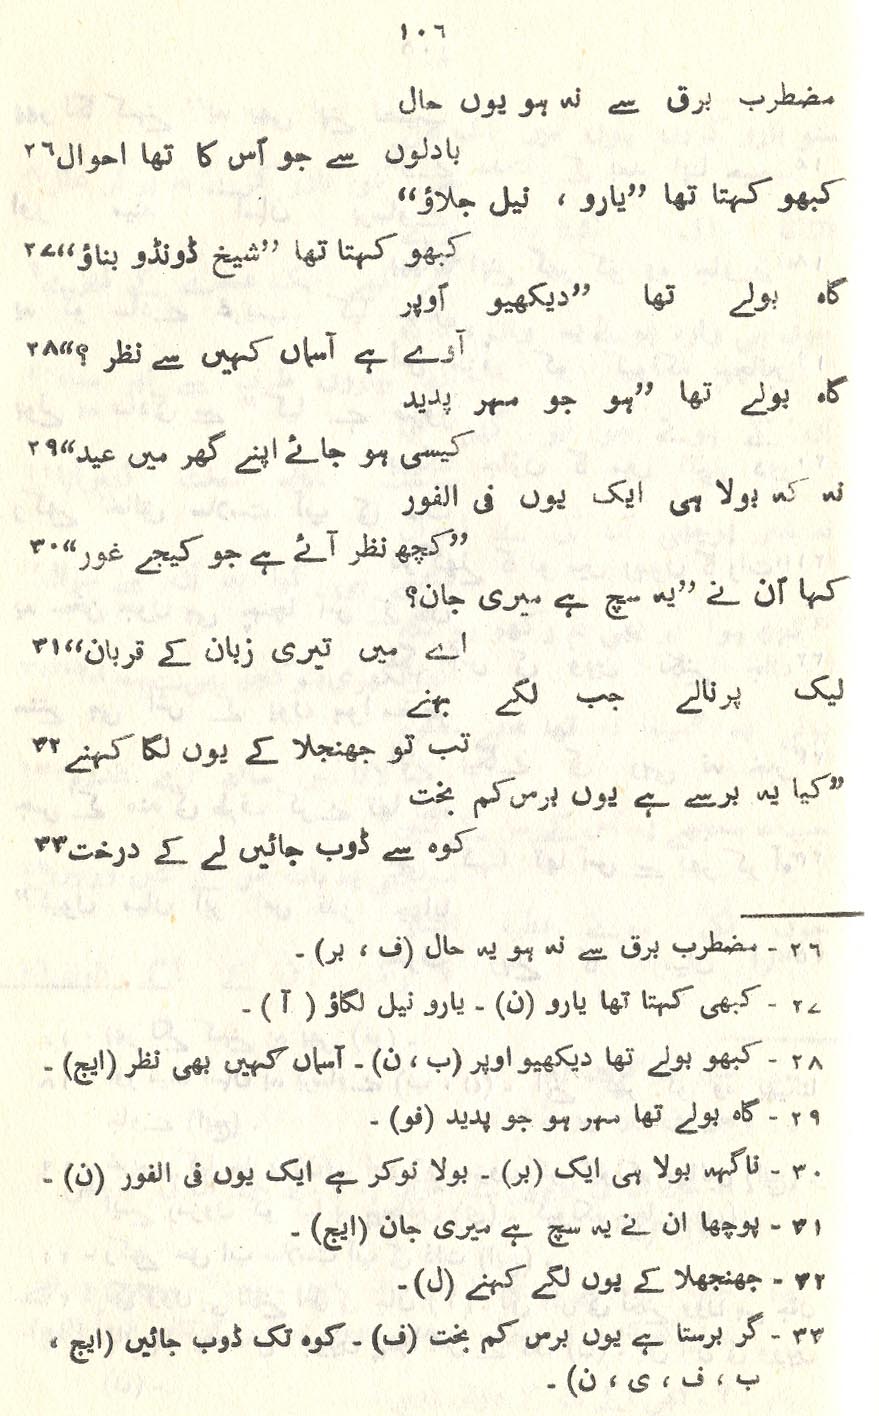 ۱۰۶
مضطرب برق سے نہ ہو یوں حال
بادلوں سے جو اُس کا تھا احوال۲۶
کبھو کہتا تھا ”یارو ، نیل جلاؤ“
کبھو کہتا تھا ”شیخ ڈونڈو بناؤ“۲۷
گاہ بولے تھا ”دیکھیو اُوپر
آوے ہے آسماں کہیں سے نظر ؟“۲۸
گاہ بولے تھا ”ہو جو مہر پدید
کیسی ہو جائے اپنے گھر میں عید“۲۹
نہ کہ بولا ہی ایک یوں فی الفور
”کچھ نظر آئے ہے جو کیجے غور“۳۰
کہا اُن نے ”یہ سچ ہے میری جان؟
اے میں تیری زبان کے قربان“۳۱
لیک پرنالے جب لگے بہنے
تب تو جھنجلا کے یوں لگا کہنے۳۲
”کیا یہ برسے ہے یوں برس کم بخت
کوہ سے ڈوب جائیں لے کے درخت۳۳
۲۶ - مضطرب برق سے نہ ہو یہ حال (ف ، بر) -
۲۷ - کبھی کہتا تھا یارو (ن) - یارو نیل لگاؤ ( آ ) -
۲۸ - کبھو بولے تھا دیکھیو اوپر (ب ، ن) - آسماں کہیں بھی نظر (ایچ) -
۲۹ - گاہ بولے تھا مہر ہو جو پدید (فو) -
۳۰ - ناگہہ بولا ہی ایک (بر) - بولا نوکر ہے ایک یوں فی الفور (ن) -
۳۱ - پوچھا ان نے یہ سچ ہے میری جان (ایچ) -
۳۲ - جھنجھلا کے یوں لگے کہنے (ل) -
۳۳ - گر برستا ہے یوں برس کم بخت (ف) - کوہ تک ڈوب جائیں (ایچ ،
ب ، ف ، ی ، ن) -